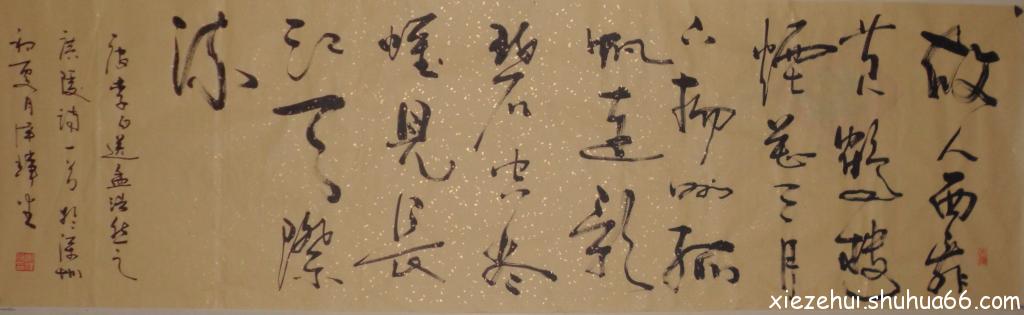 故人西辞
黄鶴楼
煙花三月
下揚州孤
帆遠影
碧空尽
惟見長
江天際
流
唐李白送孟浩然之
廣陵詩一首於深圳
初夏月澤輝
xiezehui.shuhua66.com